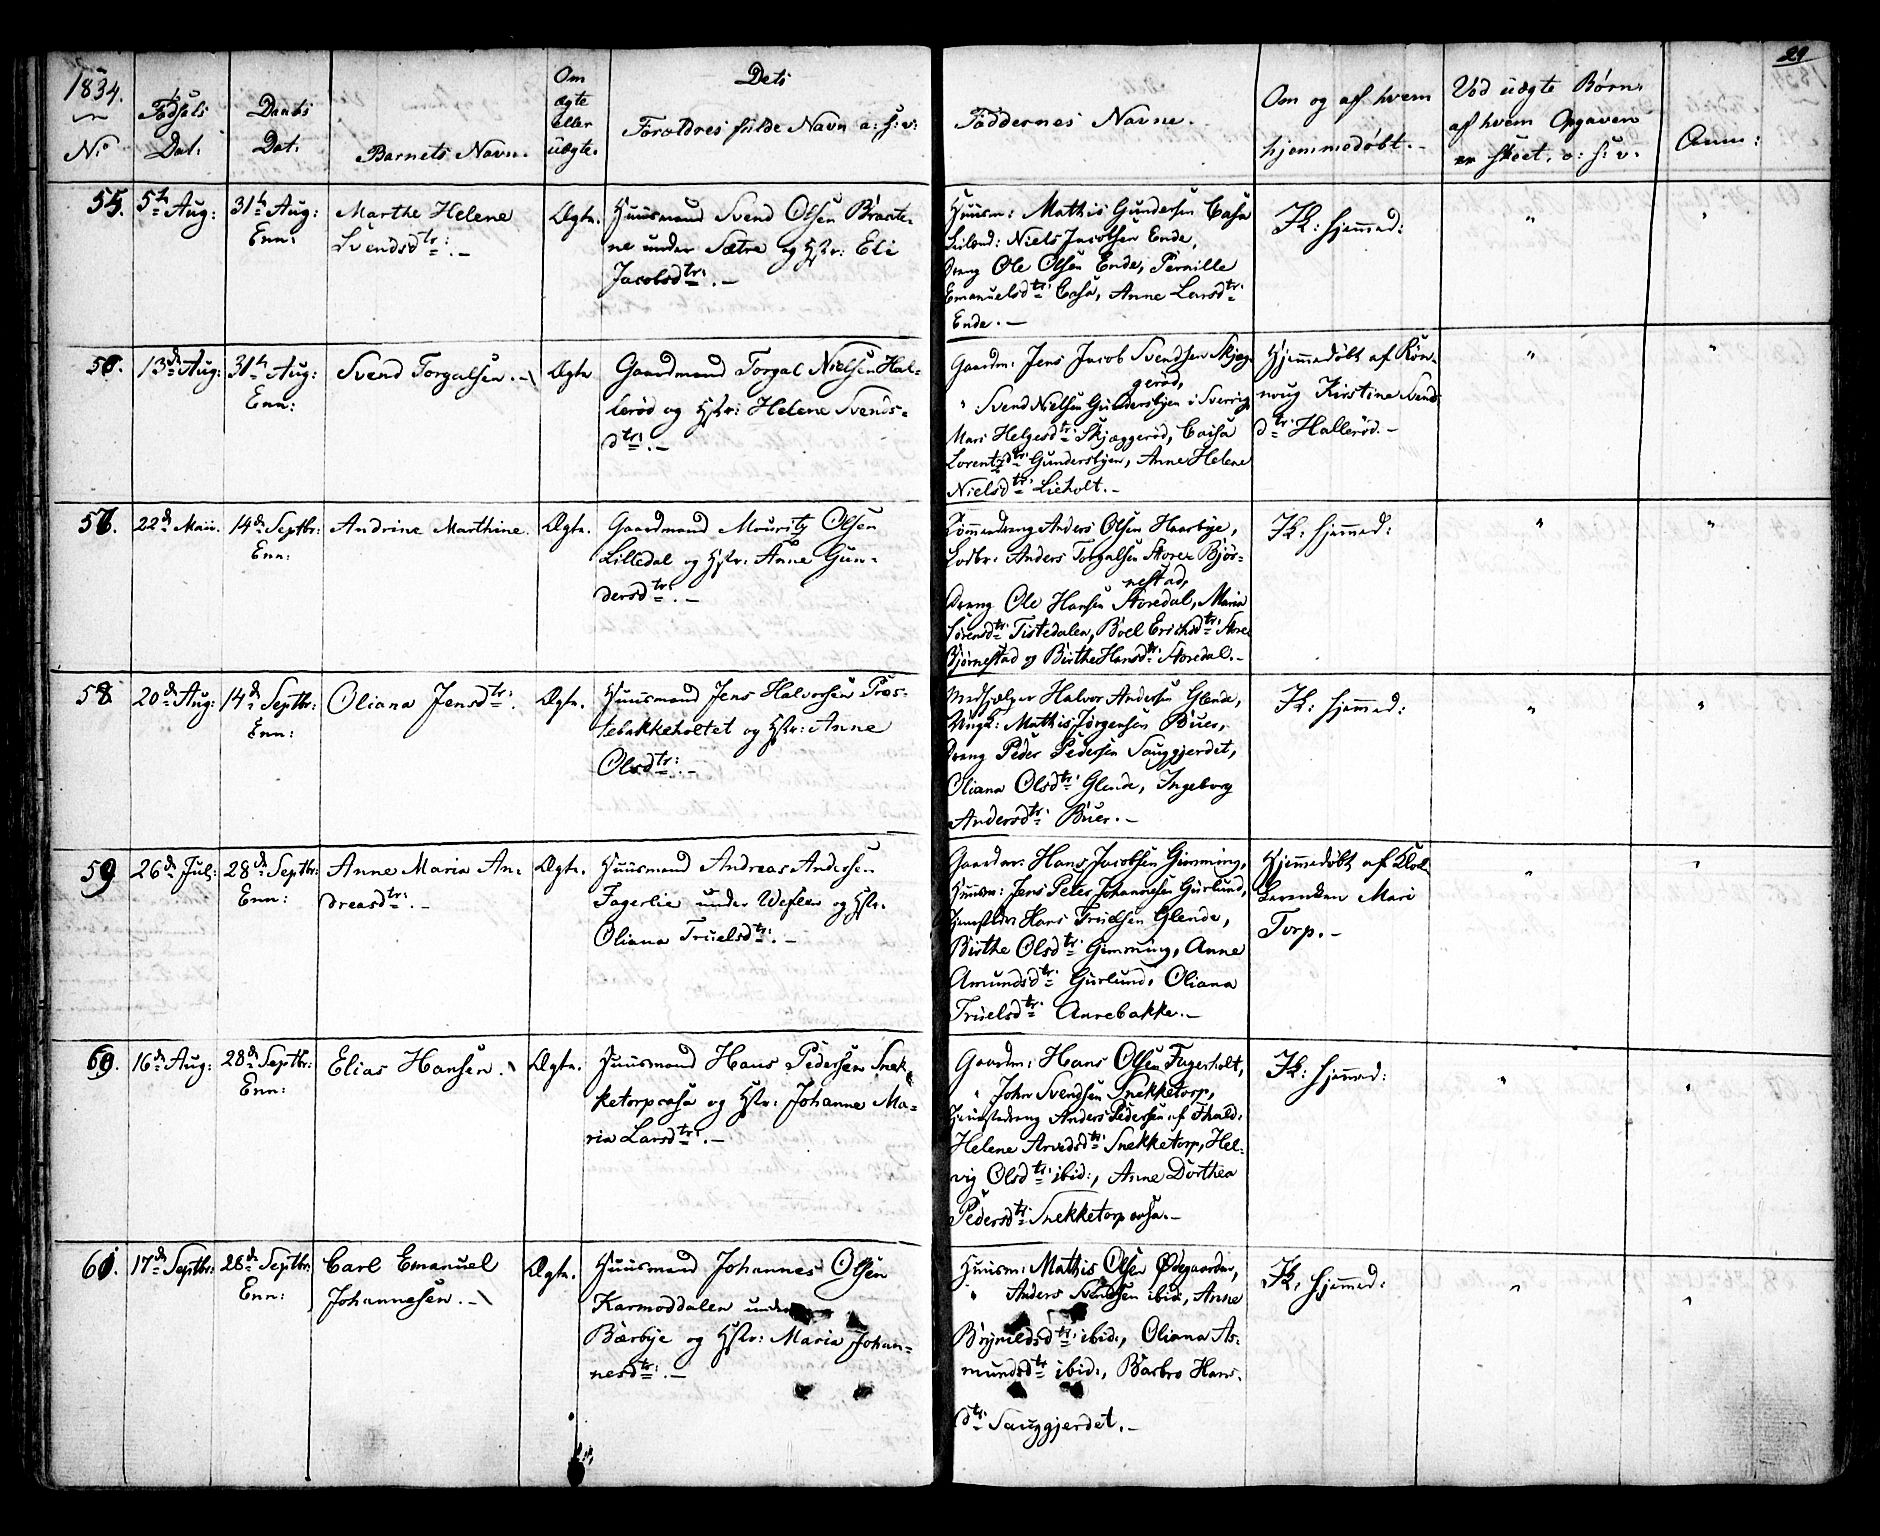 29
1834.
No
Fødsels
Dat:
Daabs
Dat:
Barnets Navn.
Om
ægte
eller
uægte.
Dets
Forældres fulde Navn o: s: v:
Faddernes Navne.
Om og af hvem
hjemmedøbt.-
Ved uægte Børn,
af hvem Opgaven
er skeet. o: s: v:
Anm:
55.
5te Aug:
31te Aug:
Enn:
Marthe Helene
Svendsdtr:.-
Ægte.
Huusmand Svend Olsen Braate-
ne under Sætre og Hstr: Eli
Jacobsdtr:.-
Huusm: Mathis Gundersen Casa
Leilænd: Niels Jacobsen Ende,
Dreng Ole Olsen Ende, Pernille
Emanuelsdtr: Casa, Anne Larsdtr:
Ende.-
K: hjemmed:
"
"
56.
13de Aug:
31te Aug:
Enn:
Svend Torgalsen.-
Ægte
Gaardmand Torgal Nielsen Hal-
lerød og Hstr: Helene Svends-
dtr:.-
Gaardm: Jens Jacob Svendsen Skjæg-
gerød,
" Svend Nielsen Gundersbyen i Sverrig
Mari Helgesdtr: Skjæggerød, Caisa
Lorentzdtr: Gundersbyen, Anne Helene
Nielsdtr: Lieholt.-
Hjemmedøbt af Røn-
noug Kirstine Svends
dtr: Hallerød.-
"
"
57.
22de Maii.
14de Septbr:
Enn:
Andrine Marthine.
Ægte.
Gaardmand Mouritz Olsen
Lilledal og Hstr: Anne Gun-
dersdtr:.-
Tømmerdreng Anders Olsen Haarbye,
Anders Torgalsen Store Bjør-
nestad,
Dreng Ole Hansen Storedal, Maria
Sørensdtr: Tistedalen, Boel Erichsdtr: Store
Bjørnestad og Birthe Hansdtr: Storedal.-
K: hjemmed:
"
"
58
20de Aug:
14de Septbr:
Enn:
Oliana Jensdtr:.
Ægte.
Huusmand Jens Halvorsen Præs-
tebakkeholtet og Hstr: Anne
Olsdtr:.-
Medhjelper Halvor Andersen Glende,
Ungk: Mathis Jørgensen Buer,
Dreng Peder Pedersen Sauggjerdet,
Oliana Olsdtr: Glende, Ingeborg
Andersdtr: Buer.-
K: hjemmed:
"
"
59
26de Jul:
28de Septbr:
Enn:
Anne Maria An-
dreasdtr:.-
Ægte.
Huusmand Andreas Andersen
Fagerlie under Weflen og Hstr.
Oliana Truelsdtr:.-
Gaardm: Hans Jacobsen Gimming,
Huusm: Jens Peter Johannesen Gurlund,
Hans Truelsen Glende,
Birthe Olsdtr: Gimming, Anne
Amundsdtr: Gurlund, Oliana
Truelsdtr: Annebakke.-
Hjemmedøbt af
Mari
Torp.-
"
"
60.
16de Aug:
28de Septbr:
Enn:
Elias Hansen.
Ægte.
Huusmand Hans Pedersen Snek-
ketorpcasa og Hstr: Johanne Ma-
ria Larsdtr:.-
Gaardm: Hans Olsen Fagerholt,
" John Svendsen Snekketorp,
Anders Pedersen af Fhald.
Helene Arvedsdtr: Snekketorp, Hel-
vig Olsdtr: ibid:, Anne Dorthea
Pedersdtr: Snekketorpcasa.-
K: hjemmed:
"
"
61.
17de Septbr:
28de Septbr:
Enn:
Carl Emanuel
Johannesen.-
Ægte.
Huusmand Johannes Olsen
Karmoddalen under
Bærbye og Hstr: Maria Johan-
nesdtr:.-
Huusm: Mathis Olsen Ødegaarden,
" Anders Svendsen ibid, Anne
Brynildsdtr: ibid:, Oliana As-
mundsdtr ibid:, Barbro Hans-
dtr: Sauggjerdet.-
K: hjemmed:
"
"